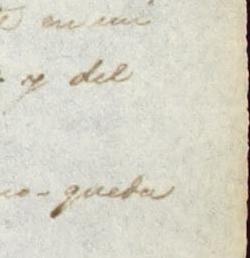 en mi
y del
no-queda